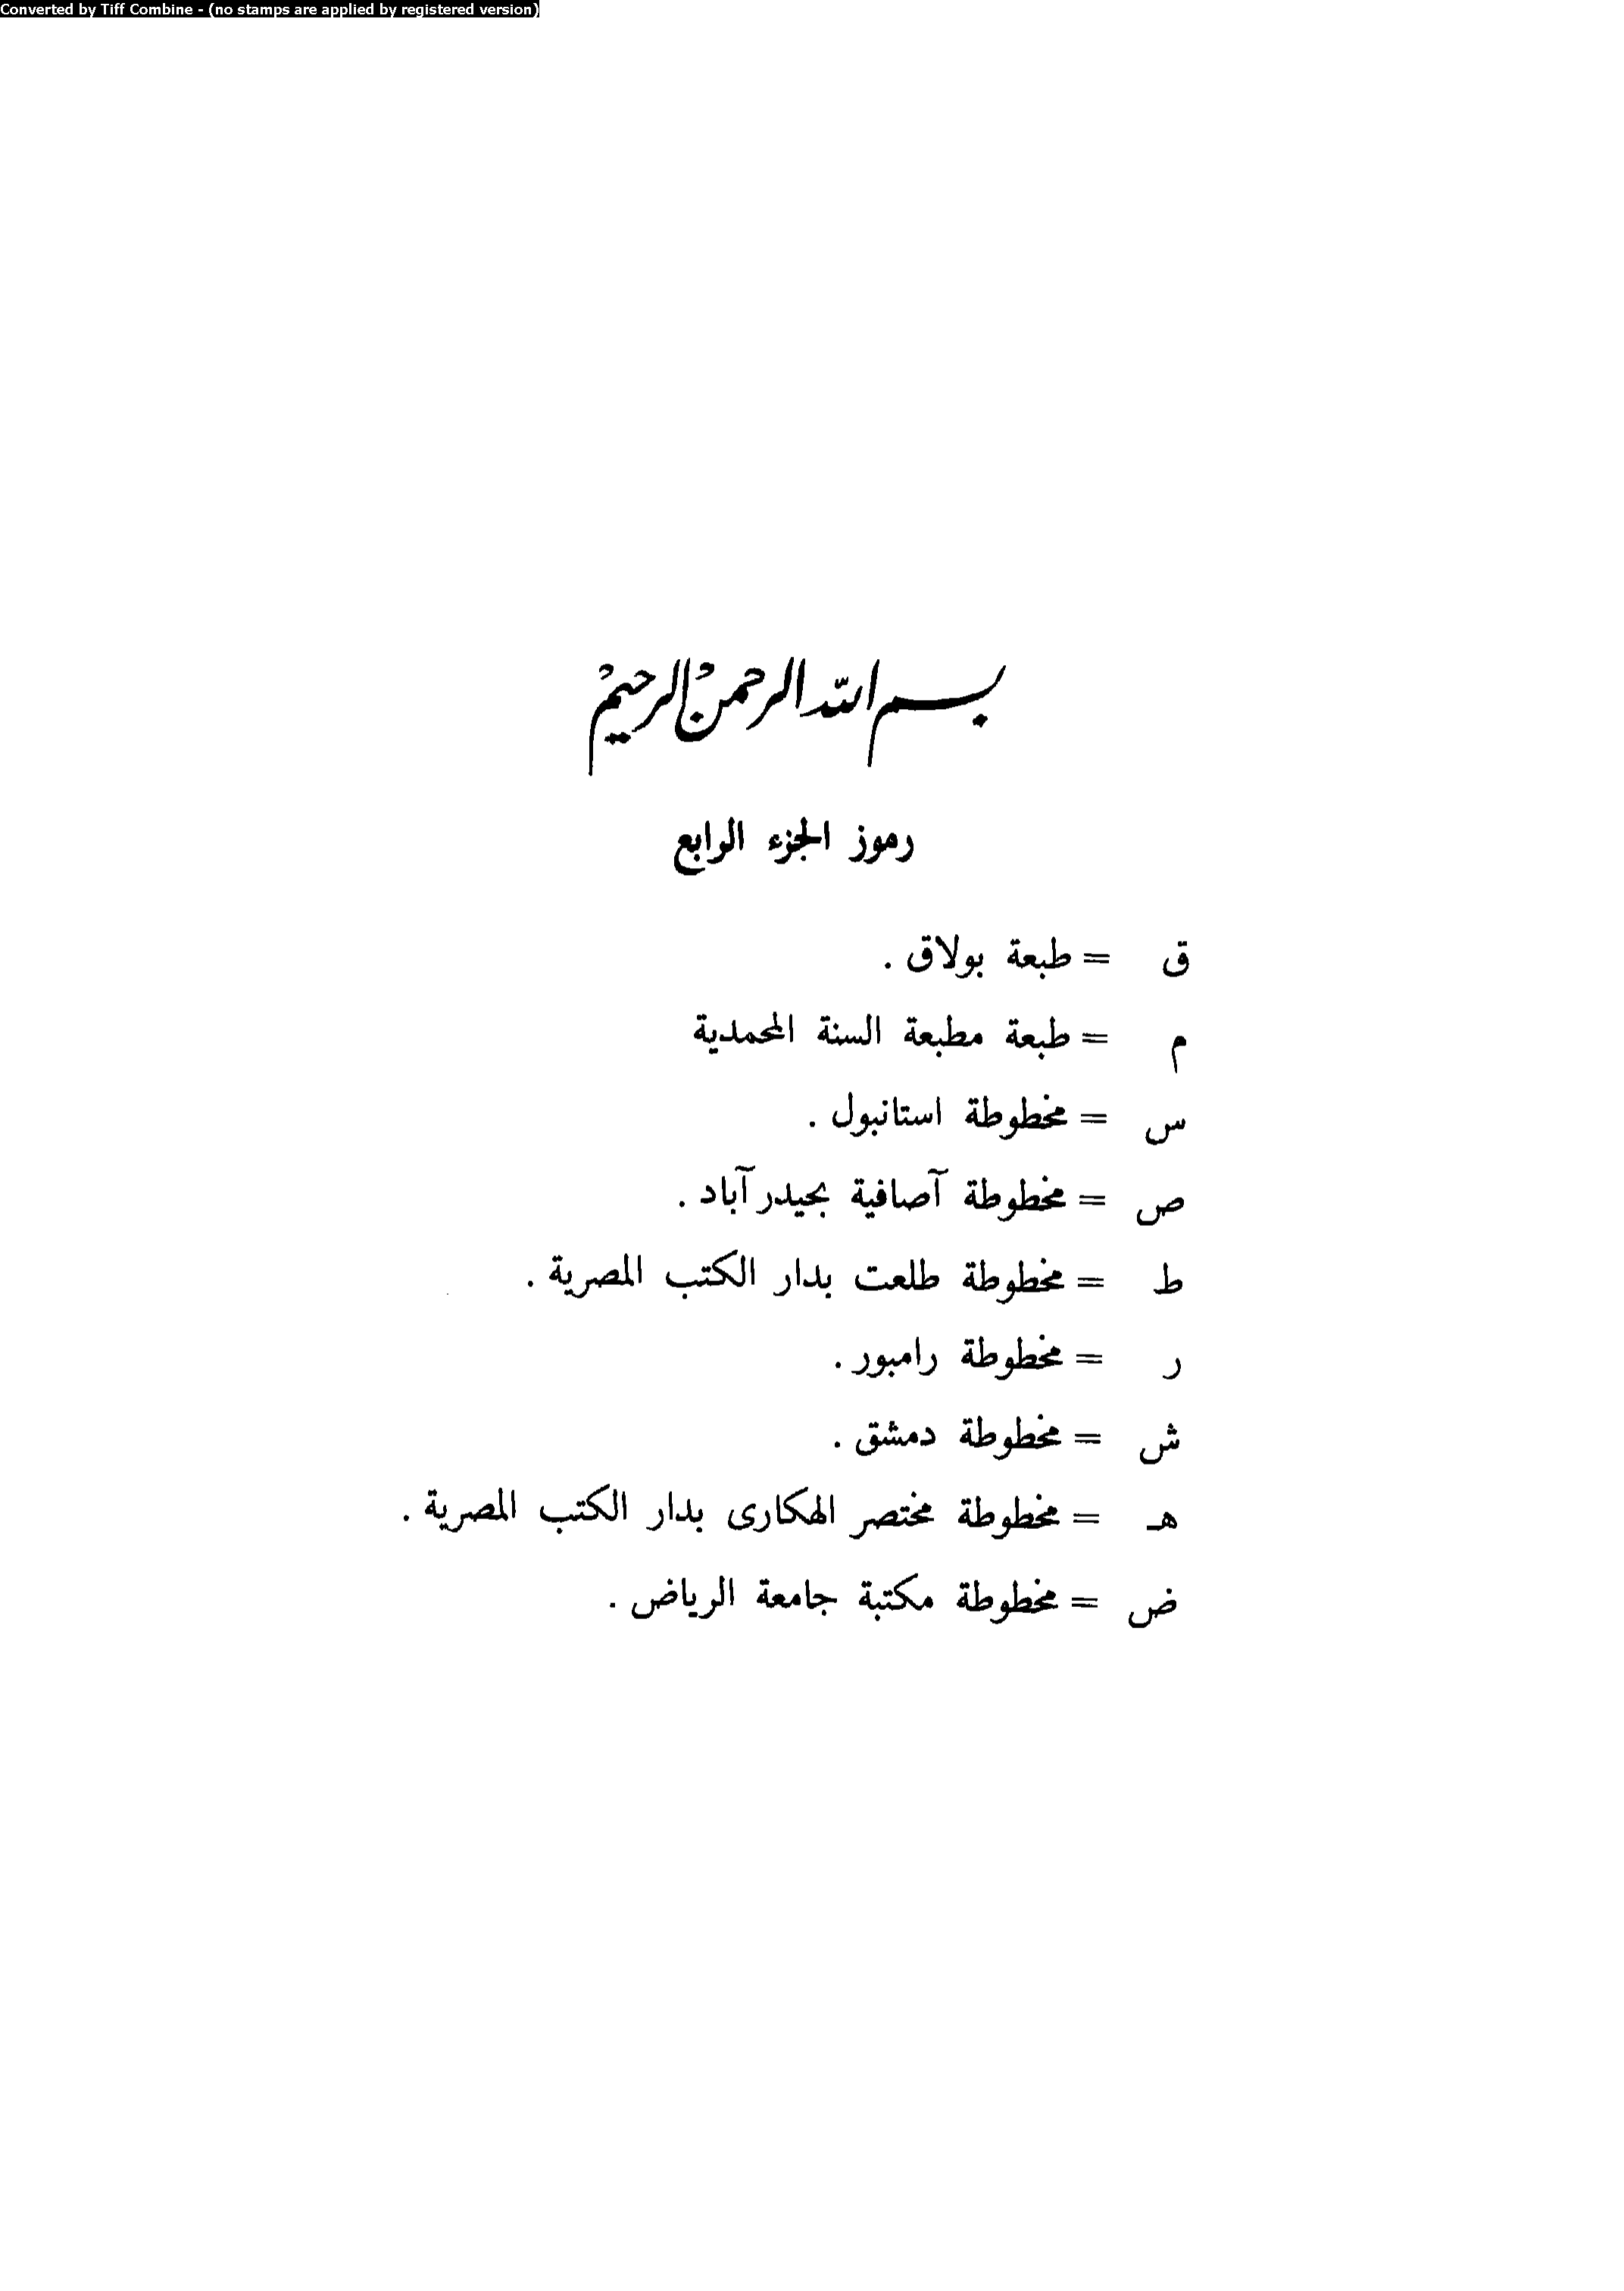 Converted by Tiff Combine - (no stamps are applied by registered version)
بسم الله الرحمن الرحيم
رموز الجزء الرابع
ق = طبعة بولاق .
م = طبعة مطبعة السنة المحمدية
س = مخطوطة استانبول .
ص = مخطوطة آصافية بحيدر آباد .
ط = مخطوطة طلعت بدار الكتب المصرية .
ر = مخطوطة رامبور .
ش = مخطوطة دمشق .
هـ = مخطوطة مختصر الهكارى بدار الكتب المصرية .
ض = مخطوطة مكتبة جامعة الرياض .